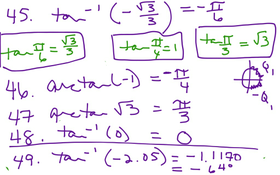 45. tan⁻¹(-√3/3) = -π/6
tan π/6 = √3/3
tan π/4 = 1
tan π/3 = √3
46. arctan(-1) = -π/4
Q₁
-Q₁
47 arctan √3 = π/3
48. tan⁻¹(0) = 0
49. tan⁻¹(-2.05) = -1.1170
= -64°